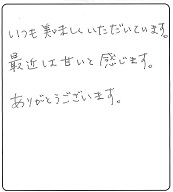 いつも美味しくいただいています。
最近は甘いと感じます。
ありがとうございます。